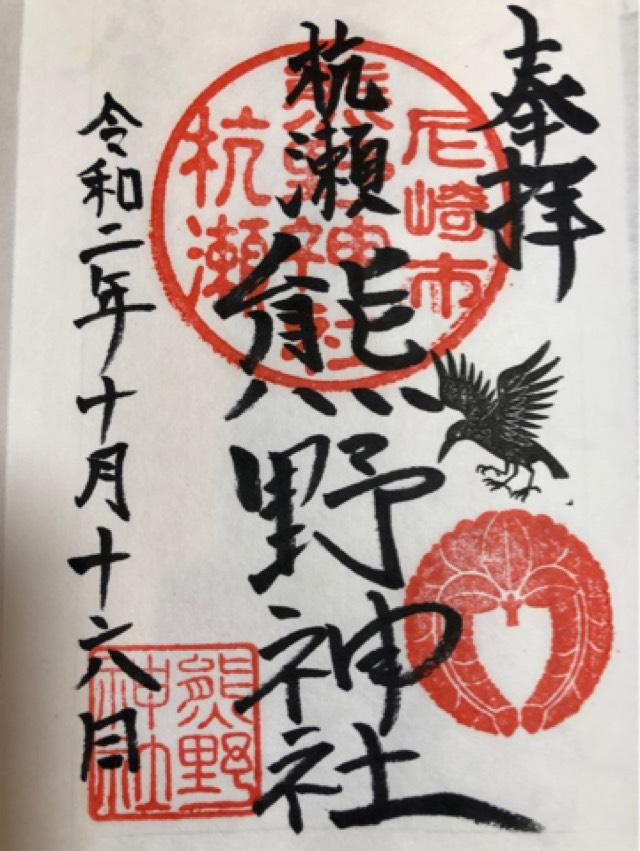 奉拝
尼崎市
熊野神社
杭瀬
杭瀬
熊野神社
熊野
神社
令和二年十月十六日